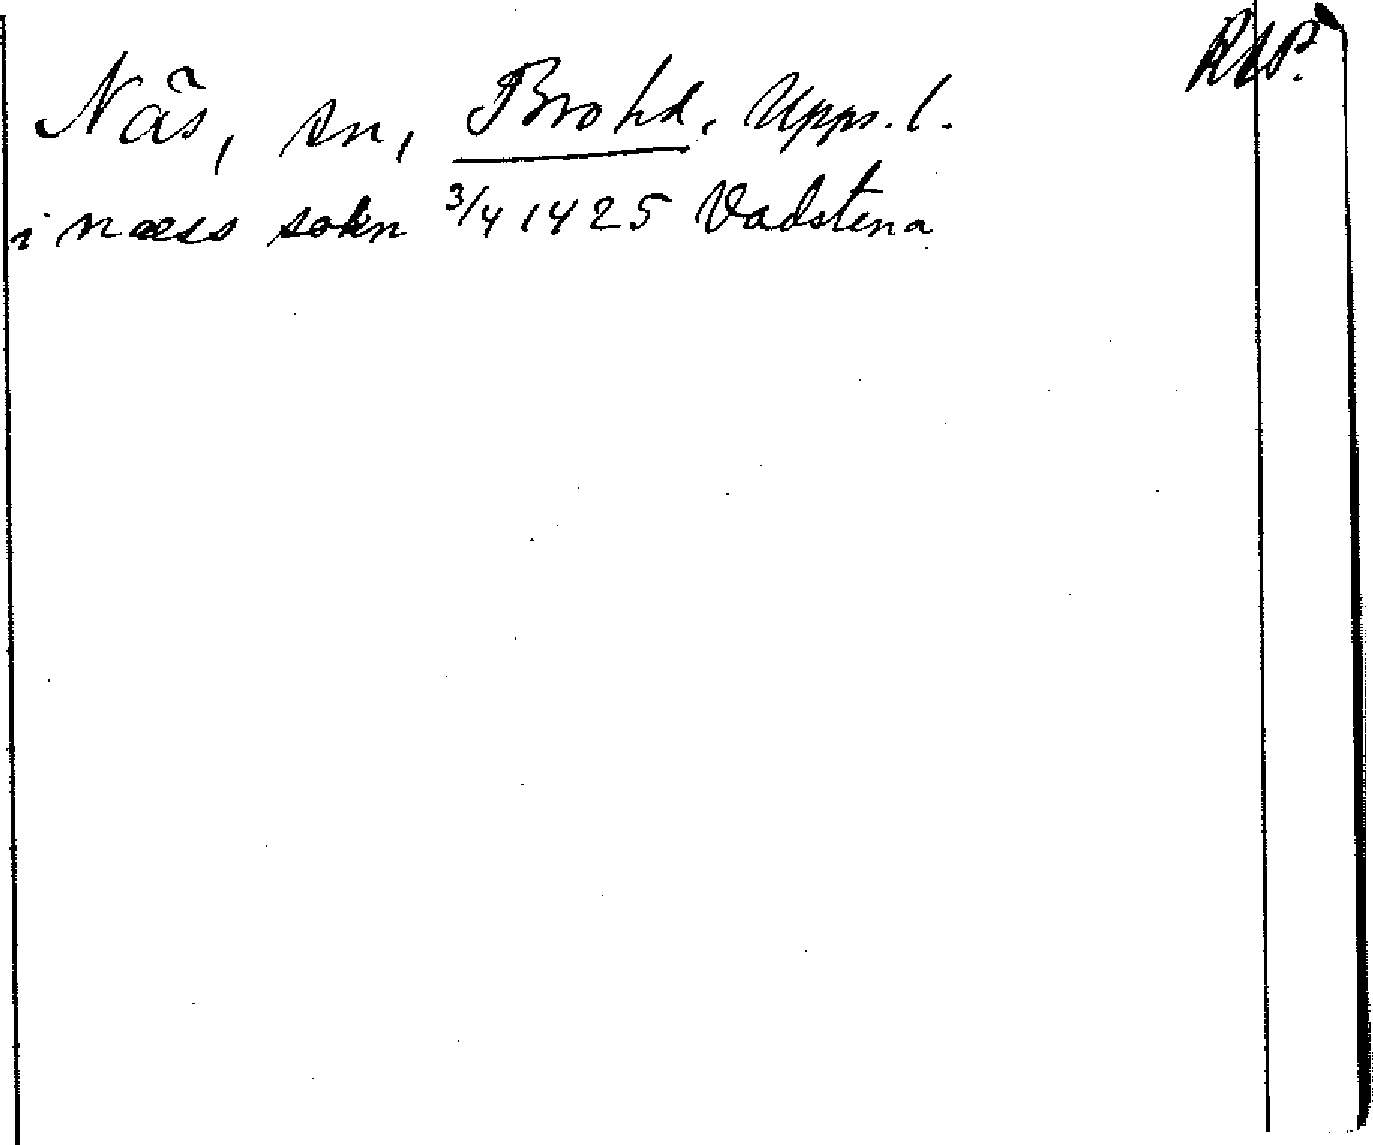 RAP.
Näs, sn, Bro hd. Upps. l.
i næss sokn 3/4 1425 Vadstena